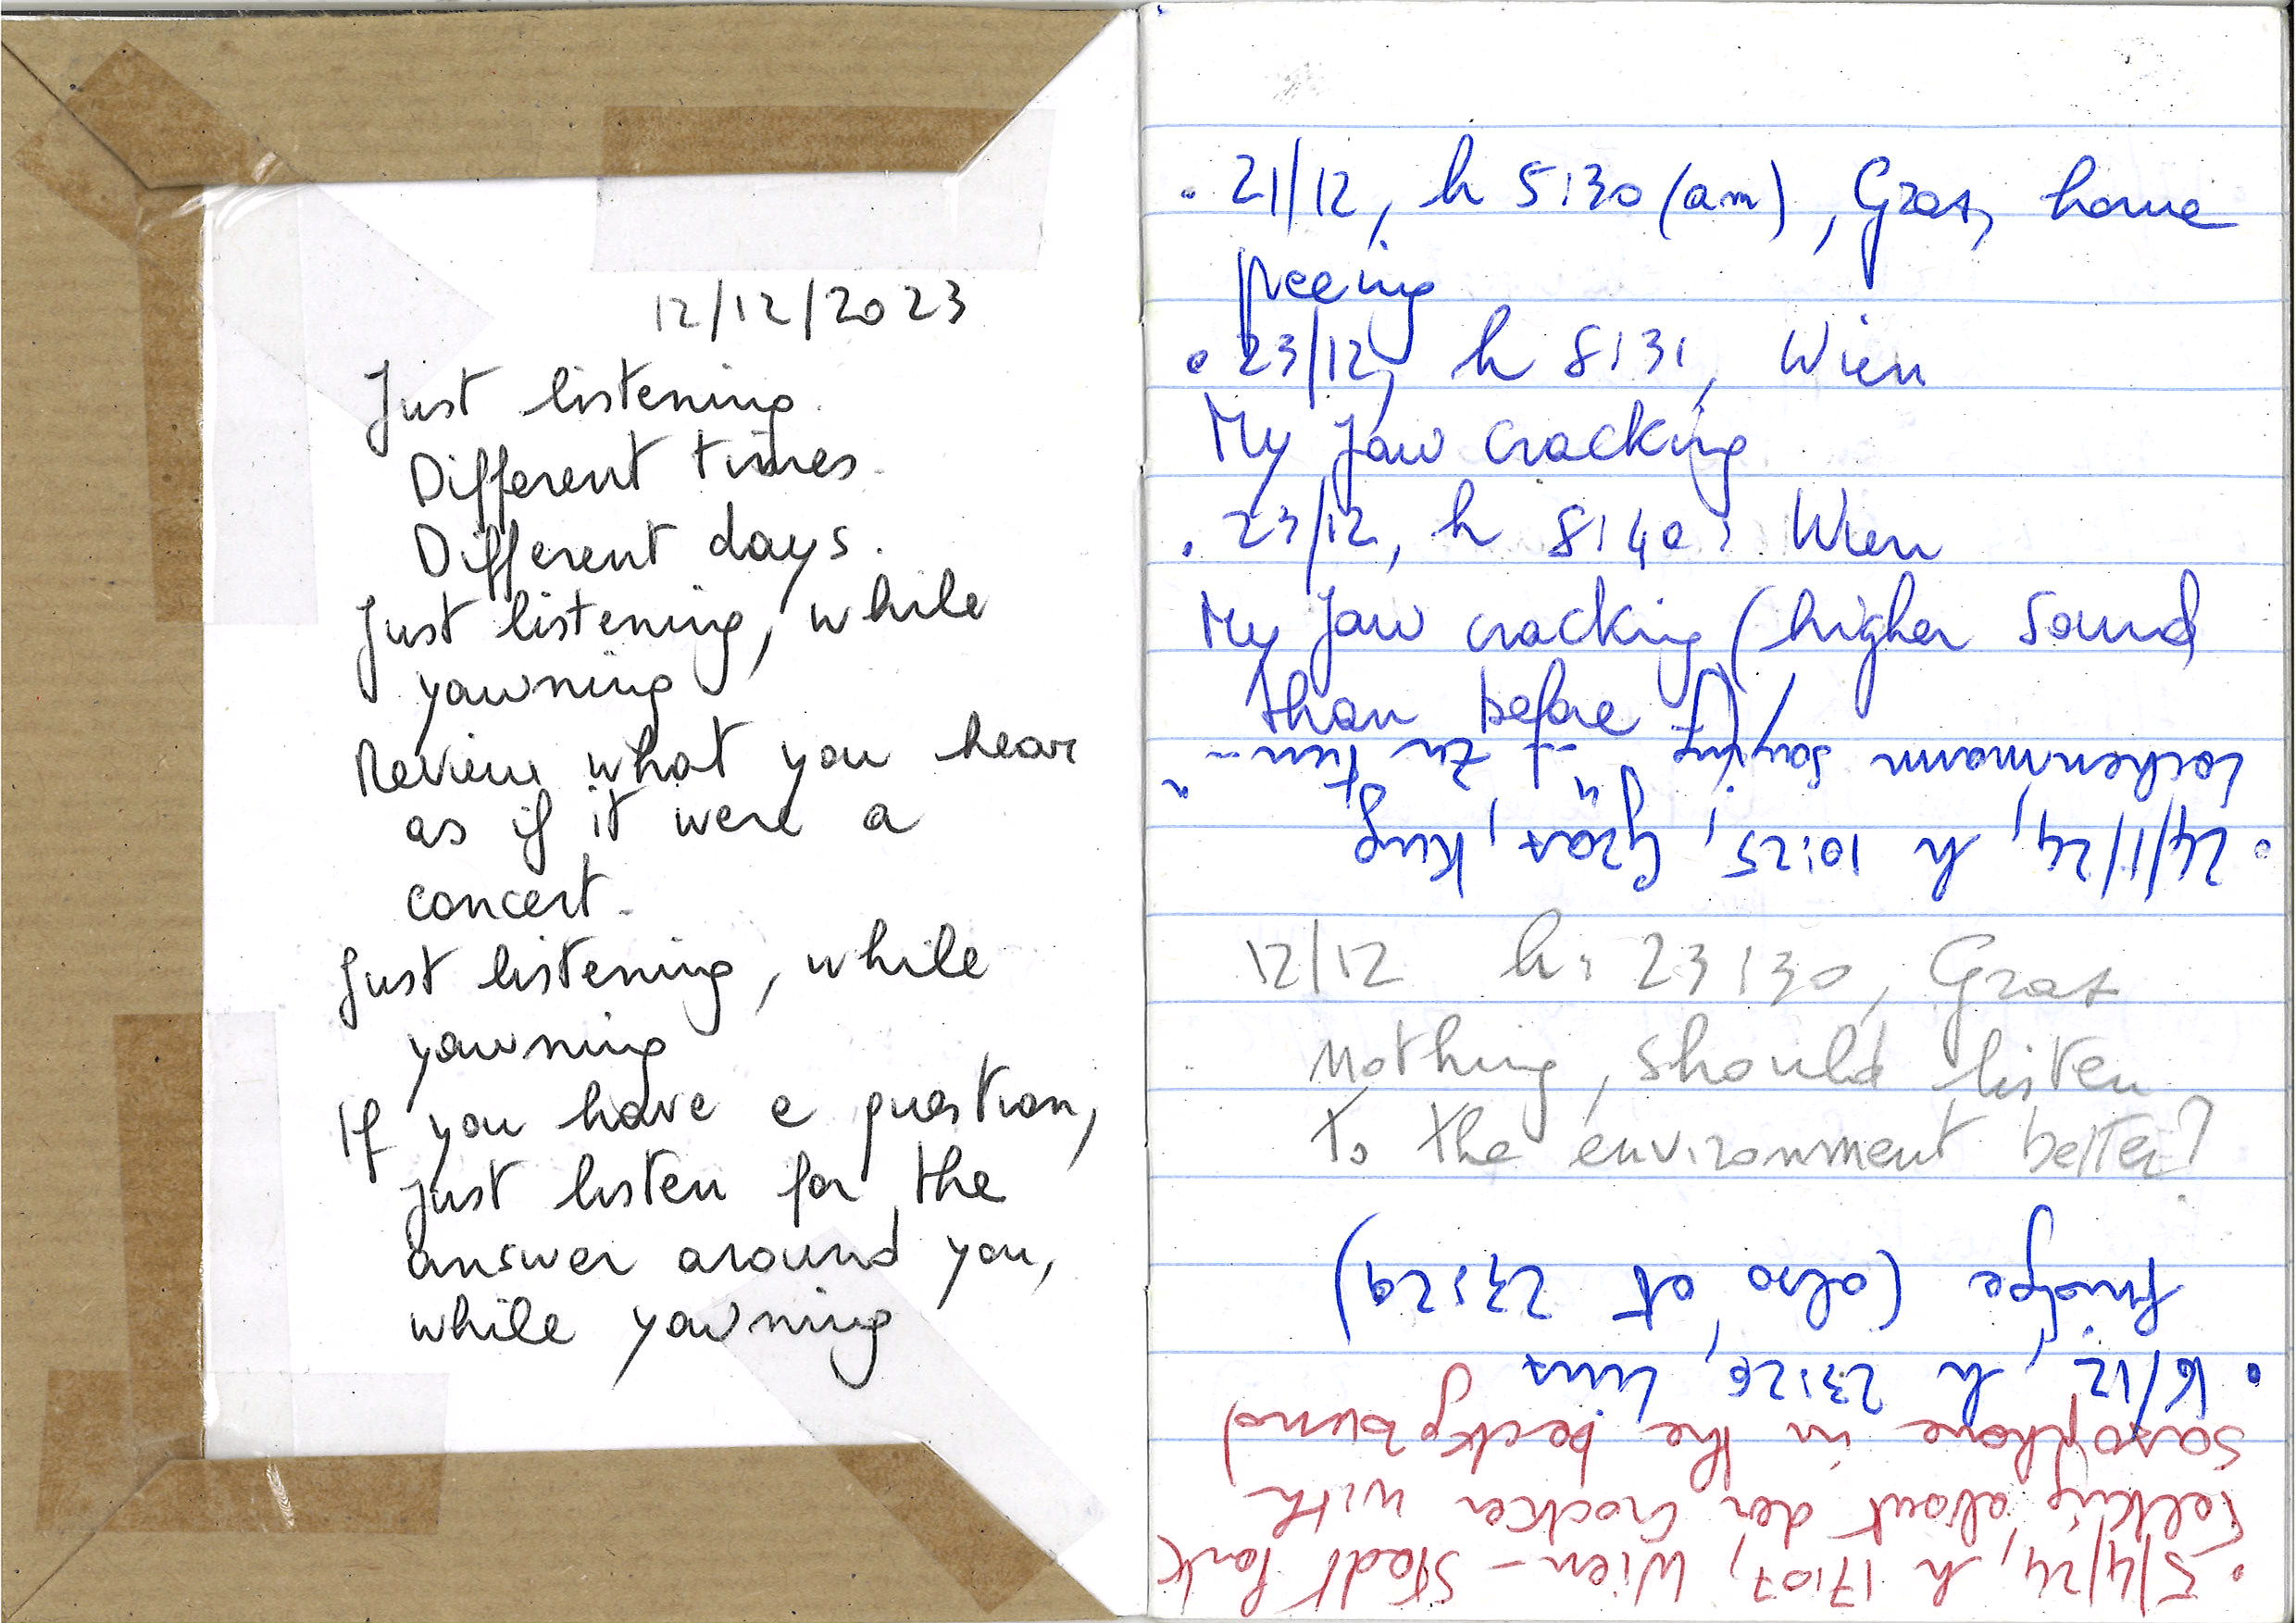 12/12/2023
Just listening.
Different times.
Different days.
Just listening, while
yawning
Review what you hear
as if it were a
concert.
Just listening, while
yawning
If you have a question,
just listen for the
answer around you,
while yawning
• 21/12, h 5:30 (am), Graz, home
peeing
• 23/12, h 8:31, Wien
My jaw cracking
• 23/12, h 8:40, Wien
My jaw cracking (higher sound
than before)
12/12 h: 23:30, Graz
nothing, should listen
to the environment better?
• 5/4/24, h 17:07, Wien - Stadt Park
talking about der Crocker with
saxophone in the background)
• 16/12, h 23:26, Linz
fridge (also at 23:29)
• 24/1/24, h 10:25, Graz, KUG
Lachenmann saying "- zu tun -"